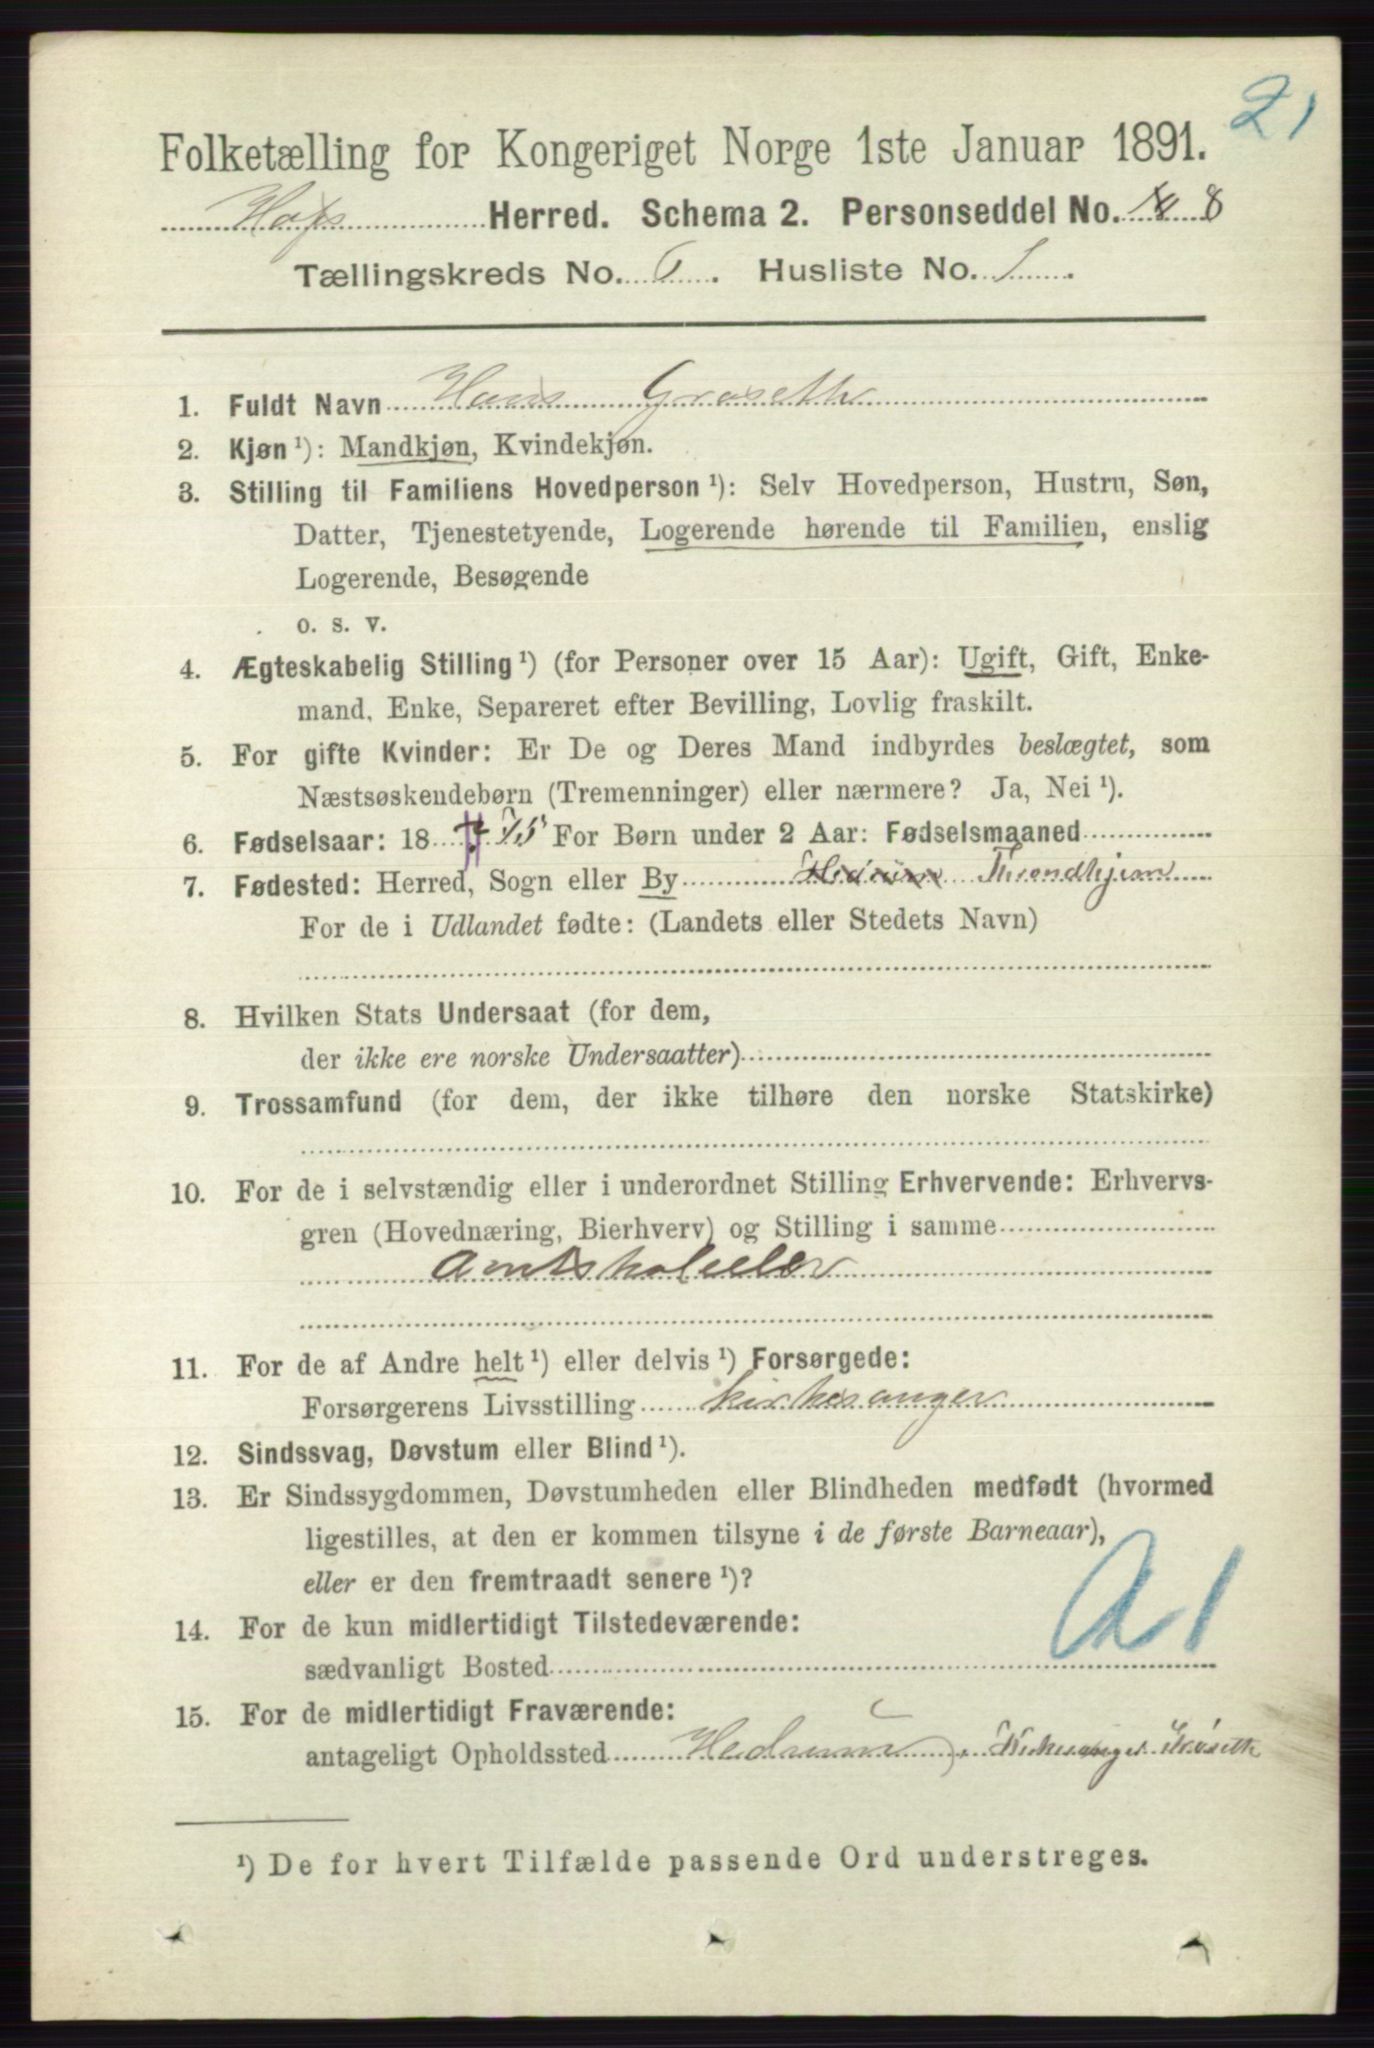 21
Folketælling for Kongeriget Norge 1ste Januar 1891.
Hofs Herred. Schema 2. Personseddel No. 8
Tællingskreds No. 6. Husliste No. 1.
1. Fuldt Navn Hans Grøseth
2. Kjøn ¹): Mandkjøn, Kvindekjøn.
3. Stilling til Familiens Hovedperson ¹): Selv Hovedperson, Hustru, Søn,
Datter, Tjenestetyende, Logerende hørende til Familien, enslig
Logerende, Besøgende
o. s. v.
4. Ægteskabelig Stilling ¹) (for Personer over 15 Aar): Ugift, Gift, Enke-
mand, Enke, Separeret efter Bevilling, Lovlig fraskilt.
5. For gifte Kvinder: Er De og Deres Mand indbyrdes beslægtet, som
Næstsøskendebørn (Tremenninger) eller nærmere? Ja, Nei ¹).
6. Fødselsaar: 18 75 For Børn under 2 Aar: Fødselsmaaned
7. Fødested: Herred, Sogn eller By Hedrum Throndhjem
For de i Udlandet fødte: (Landets eller Stedets Navn)
8. Hvilken Stats Undersaat (for dem,
der ikke ere norske Undersaatter)
9. Trossamfund (for dem, der ikke tilhøre den norske Statskirke)
10. For de i selvstændig eller i underordnet Stilling Erhvervende: Erhvervs-
gren (Hovednæring, Bierhverv) og Stilling i samme
Amtskoleelev
11. For de af Andre helt ¹) eller delvis ¹) Forsørgede:
Forsørgerens Livsstilling kirkesanger
12. Sindssvag, Døvstum eller Blind ¹).
13. Er Sindssygdommen, Døvstumheden eller Blindheden medfødt (hvormed
ligestilles, at den er kommen tilsyne i de første Barneaar),
eller er den fremtraadt senere ¹)?
14. For de kun midlertidigt Tilstedeværende:
sædvanligt Bosted
15. For de midlertidigt Fraværende:
antageligt Opholdssted Hedrum, Kirkesanger Grøseth
¹) De for hvert Tilfælde passende Ord understreges.